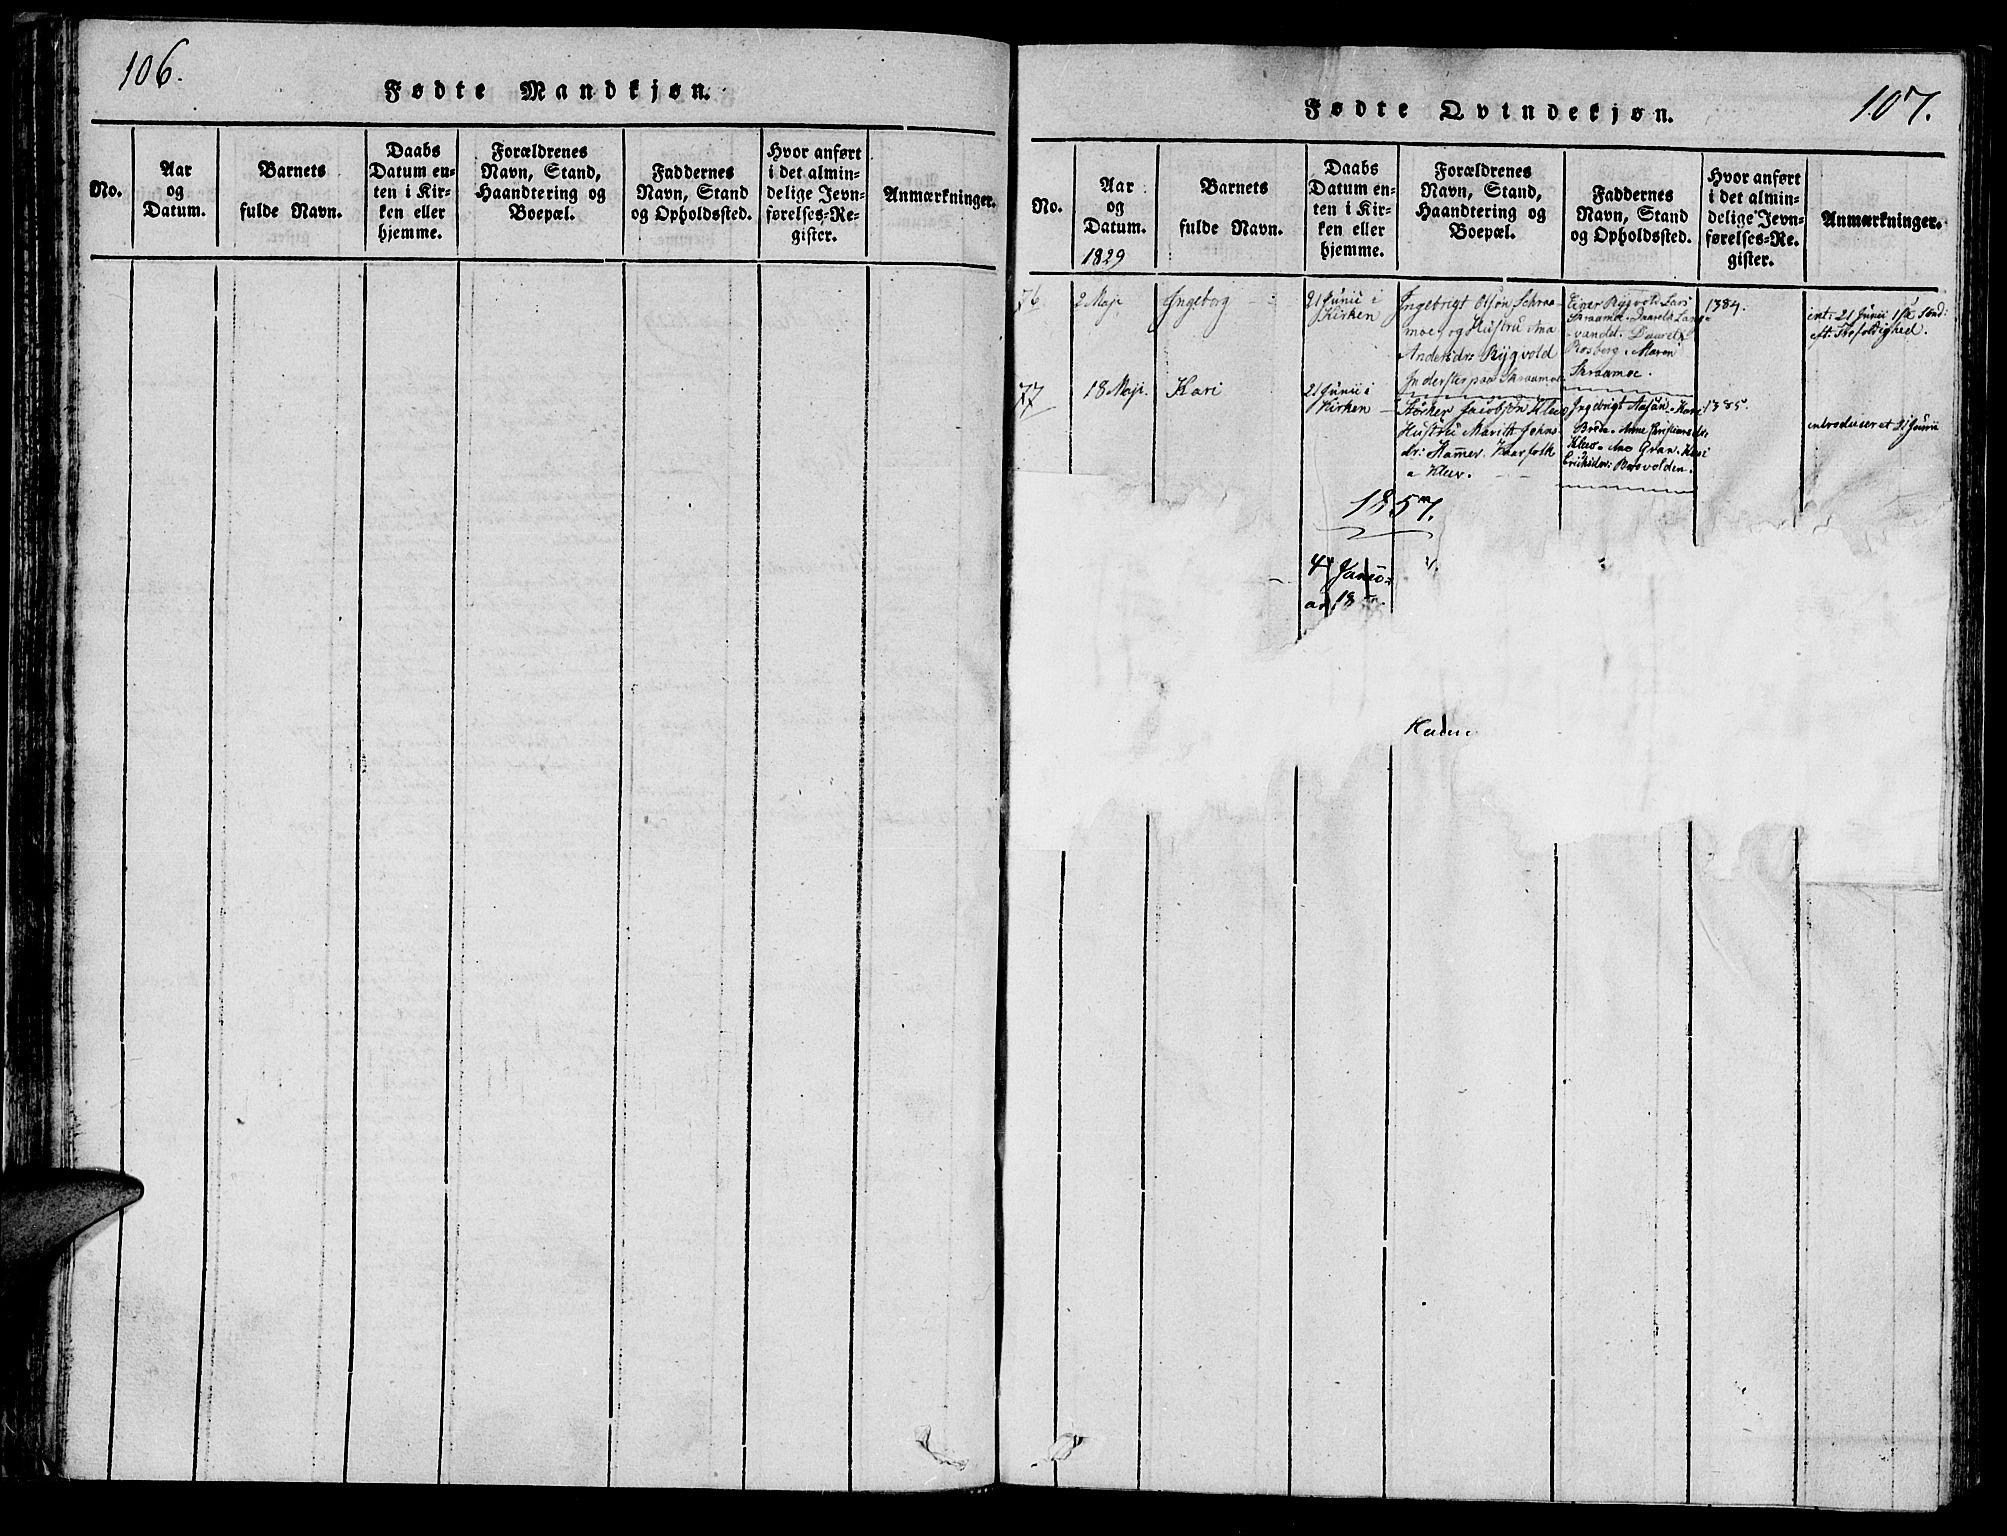 106.
Fødte Mandkjøn.
No.
Aar
og
Datum.
Barnets
fulde Navn.
Daabs
Datum en-
ten i Kir-
ken eller
hjemme.
Forældrenes
Navn, Stand,
Haandtering og
Boepæl.
Faddernes
Navn, Stand
og Opholdssted.
Hvor anført
i det almin-
delige Jevn-
førelses-Re-
gister.
Anmærkninger.
107.
Fødte Qvindekjøn.
No.
Aar
og
Datum.
1829
Barnets
fulde Navn.
Daabs
Datum en-
ten i Kir-
ken eller
hjemme.
Forældrenes
Navn, Stand,
Haandtering og
Boepæl.
Faddernes
Navn, Stand
og Opholdssted.
Hvor anført
i det almin-
delige Jevn-
førelses-Re-
gister.
Anmærkninger.
76.
2 Maji
Ingeborg
21 Junii i
Kirken
Ingebrigt Olsøn Schraa-
moe og Hustru Ana
Andersdr: Rygvold
Inderster paa Skraamoe
Einer Rygvold Lars
Skraamoe
vandet.
Rosberg. Maren
Skraamoe.
1384.
int: 21 Junii 1ste Sønd:
eft: Trefoldighed.
77
18 Maji.
Kari
21 Junii i
Kirken
Størker Jacobsøn Klev
Hustru Maritt Johns-
dr: Hamer. Huusfolk
a Klev.
Ingebrigt Aasan. Kari
Brede. Anne Christiansdr:
Klev. Ane Gran. Kari
Eriksdr: Bosvolden.
1385.
introduceret 21 Junii
1857.
4
Janu-
ar 18